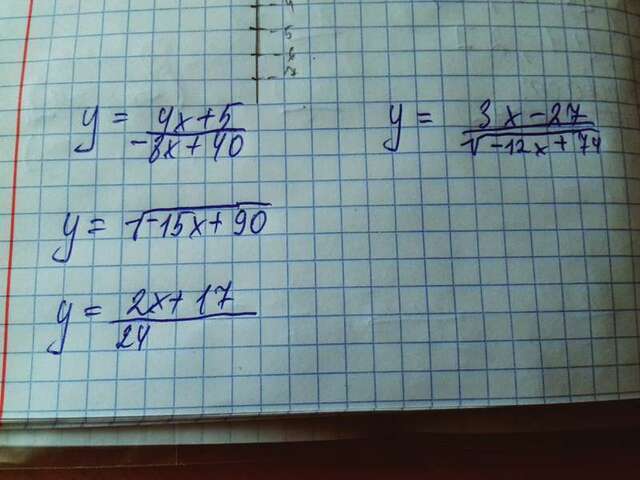 y = \frac{4x+5}{-8x+40}
y = \sqrt{-15x+90}
y = \frac{2x+17}{24}
y = \frac{3x-27}{\sqrt{-12x+74}}